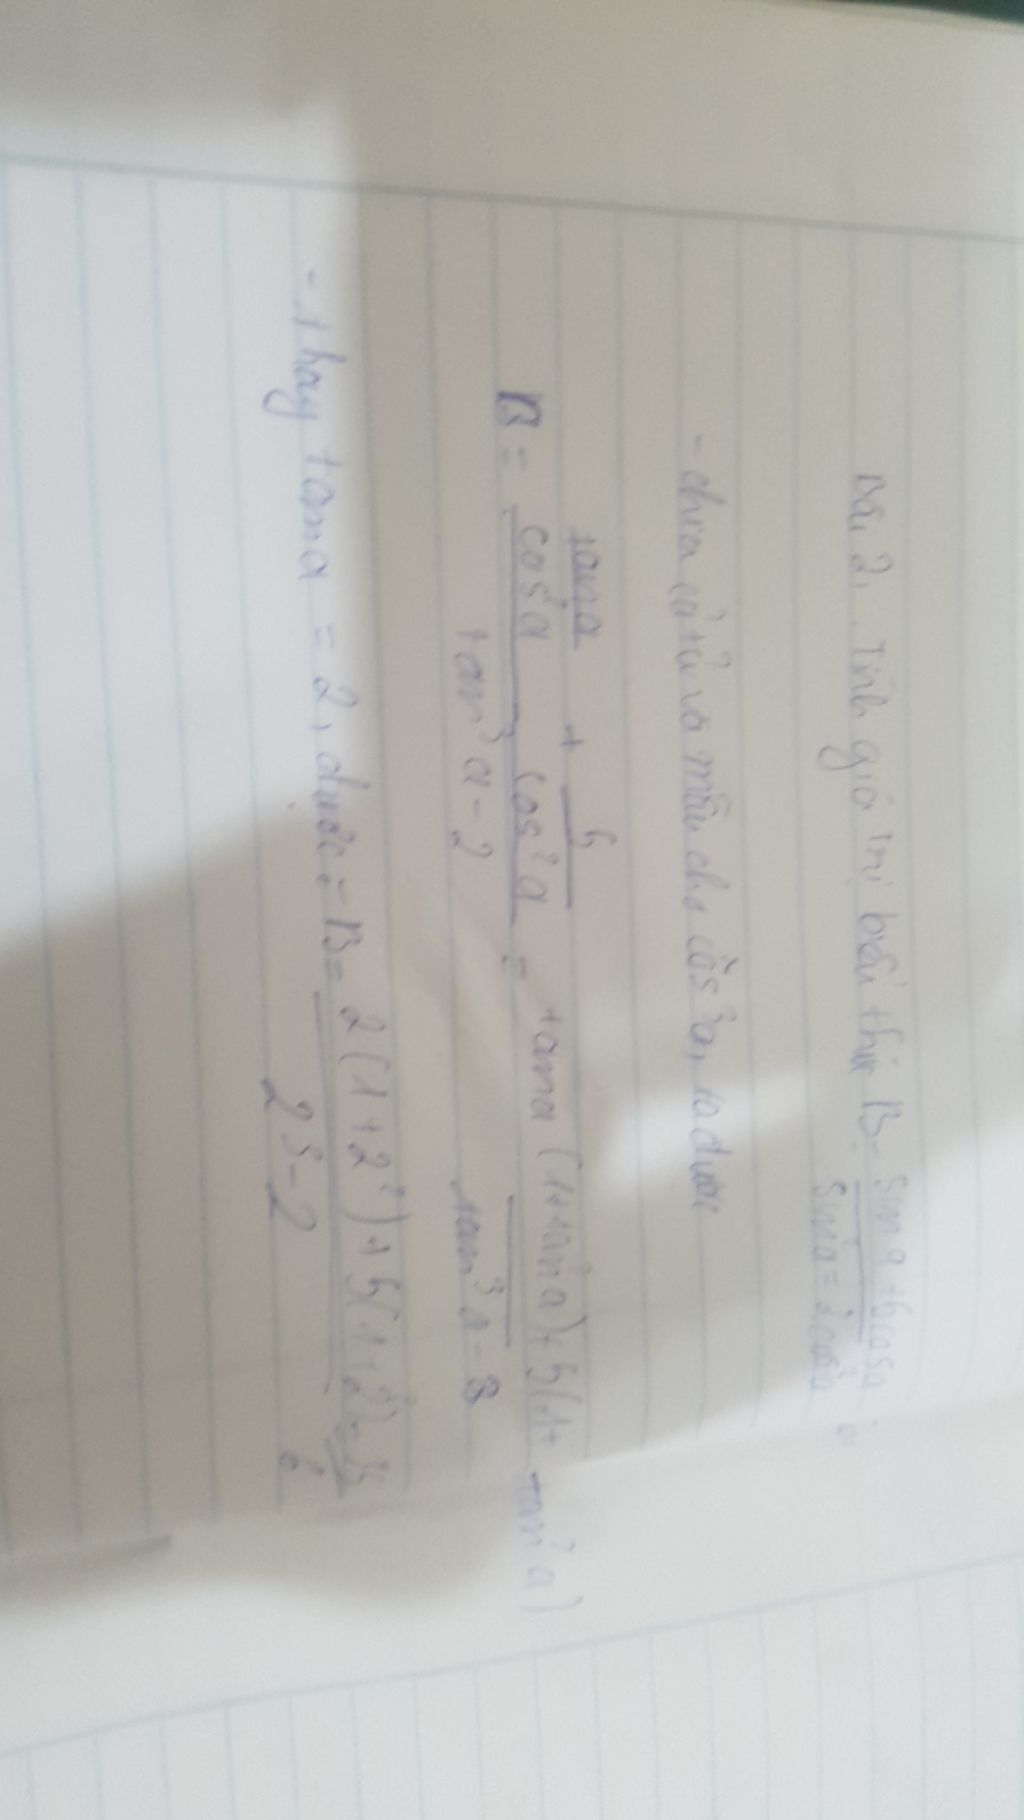 Bài 2. Tính giá trị biểu thức B = sina + 5cosa / sin³a = 2cos³a
- chia cả tử và mẫu cho cos³a, ta được
B = tana/cos²a + 5/cos²a / tan³a - 2 = tana (1+tan²a) + 5(1+ tan²a) / tan³a - 3
- Thay tana = 2, được: B = 2(1+2²) + 5(1+2²) = 35 / 2³-2 6